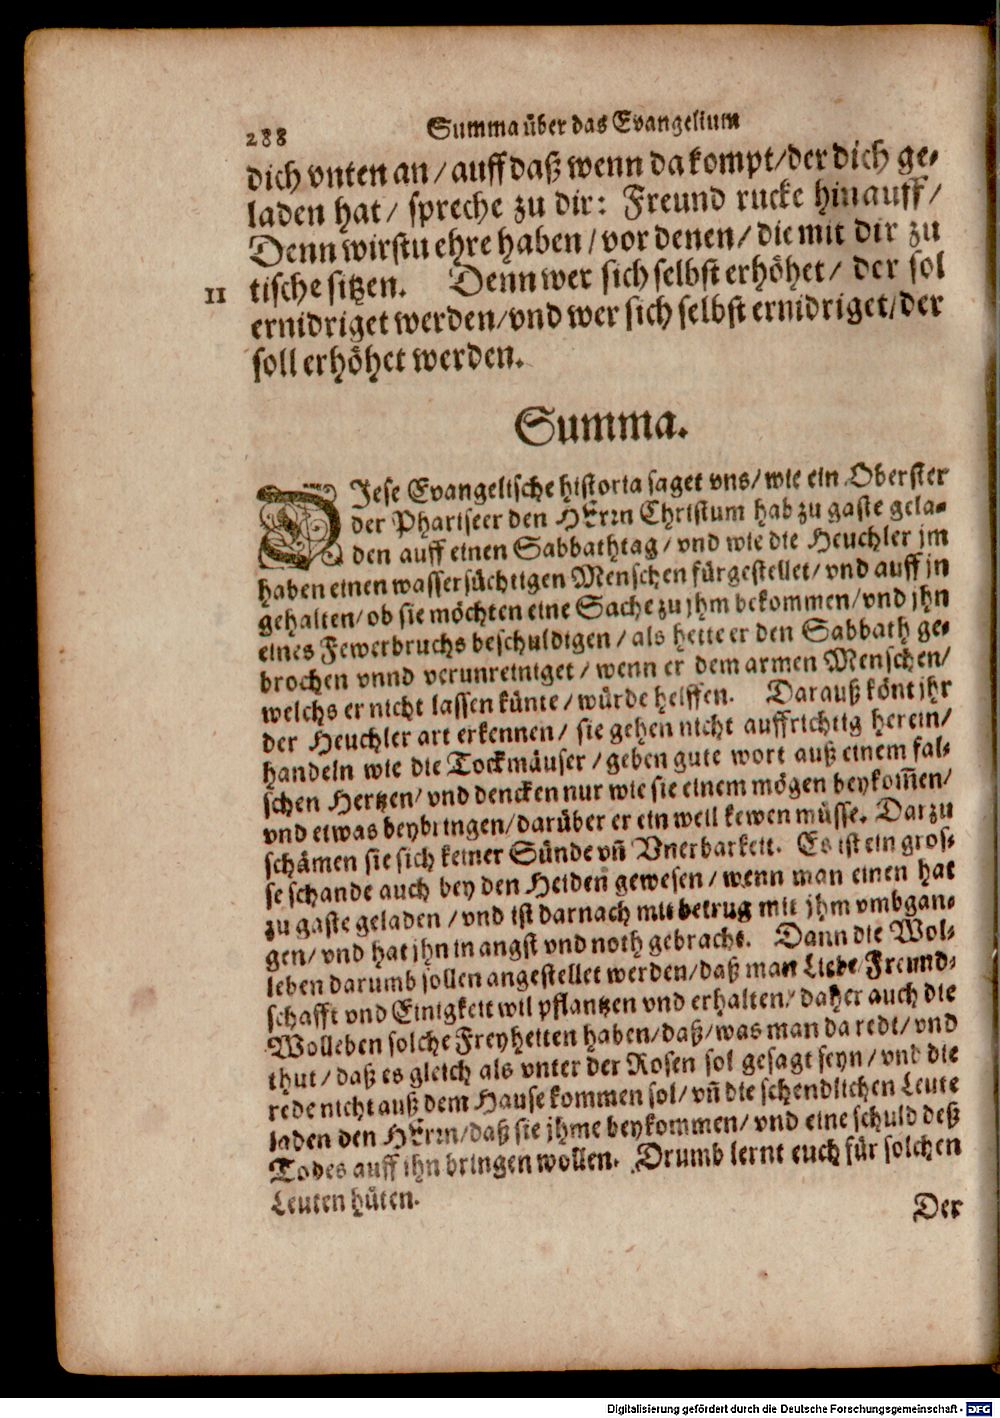 288 Summa über das Evangelium
dich vnten an / auff daß wenn da kompt / der dich ge-
laden hat / spreche zu dir: Freund rucke hinauff /
Denn wirstu ehre haben / vor denen / die mit dir zu
11 tische sitzen. Denn wer sich selbst erhöhet / der sol
ernidriget werden / vnd wer sich selbst ernidriget / der
soll erhöhet werden.
Summa.
DIese Evangelische historia saget vns / wie ein Oberster
der Phariseer den HErrn Christum hab zu gaste gela-
den auff einen Sabbathtag / vnd wie die Heuchler jm
haben einen wassersüchtigen Menschen fürgestellet / vnd auff jn
gehalten / ob sie möchten eine Sache zu jhm bekommen / vnd jhn
eines Fewerbruchs beschuldigen / als hette er den Sabbath ge-
brochen vnnd verunreiniget / wenn er dem armen Menschen /
welchs er nicht lassen künte / würde helffen. Darauß könt jhr
der Heuchler art erkennen / sie gehen nicht auffrichtig herein /
handeln wie die Tockmäuser / geben gute wort auß einem fal-
schen Hertzen / vnd dencken nur wie sie einem mögen beykom̃en /
vnd etwas beybringen / darüber er ein weil kewen müsse. Darzu
schämen sie sich keiner Sünde vñ Vnerbarkeit. Es ist ein gros-
se schande auch bey den Heiden gewesen / wenn man einen hat
zu gaste geladen / vnd ist darnach mit betrug mit jhm vmbgan-
gen / vnd hat jhn in angst vnd noth gebracht. Dann die Wol-
leben darumb sollen angestellet werden / daß man Liebe / Freund-
schafft vnd Einigkeit wil pflantzen vnd erhalten / daher auch die
Wolleben solche Freyheiten haben / daß / was man da redt / vnd
thut / daß es gleich als vnter der Rosen sol gesagt seyn / vnd die
rede nicht auß dem Hause kommen sol / vñ die schendlichen Leute
laden den HErrn / daß sie jhme beykommen / vnd eine schuld deß
Todes auff ihn bringen wollen. Drumb lernt euch für solchen
Leuten hüten.
Der
Digitalisierung gefördert durch die Deutsche Forschungsgemeinschaft - DFG